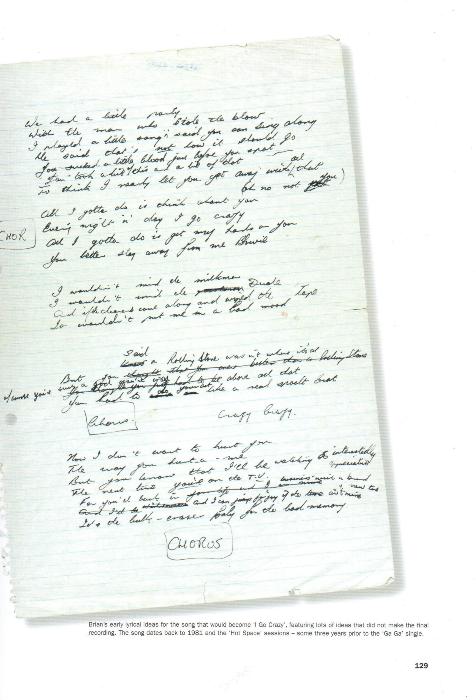 We had a little party
With the man who stole the blow
I played a little song & said you can sing along
He said that's not how it should go
You sucked a little blood just before you spat
You took a bit of this and a bit of that
To think I nearly let you get away with that
oh no not you)
CHOR
All I gotta do is think about you
Every night 'n' day I go crazy
All I gotta do is get my hands on you
You better stay away from me
I wouldn't mind the milkman
I wouldn't mind the Dude
And if the came along and the Tape
It wouldn't put me in a bad mood
Said
But a Rolling Stone wasn't where it's at
of course you're above all that
You had to like a real brat
Chorus
Crazy Crazy.
Now I don't want to hurt you
The way you hurt a - me
But you know that I'll be watching interestedly
The next time you're on the T.V.
for the bad memory
CHORUS
Brian's early lyrical ideas for the song that would become 'I Go Crazy', featuring lots of ideas that did not make the final
recording. The song dates back to 1981 and the 'Hot Space' sessions – some three years prior to the 'Ga Ga' single.
129